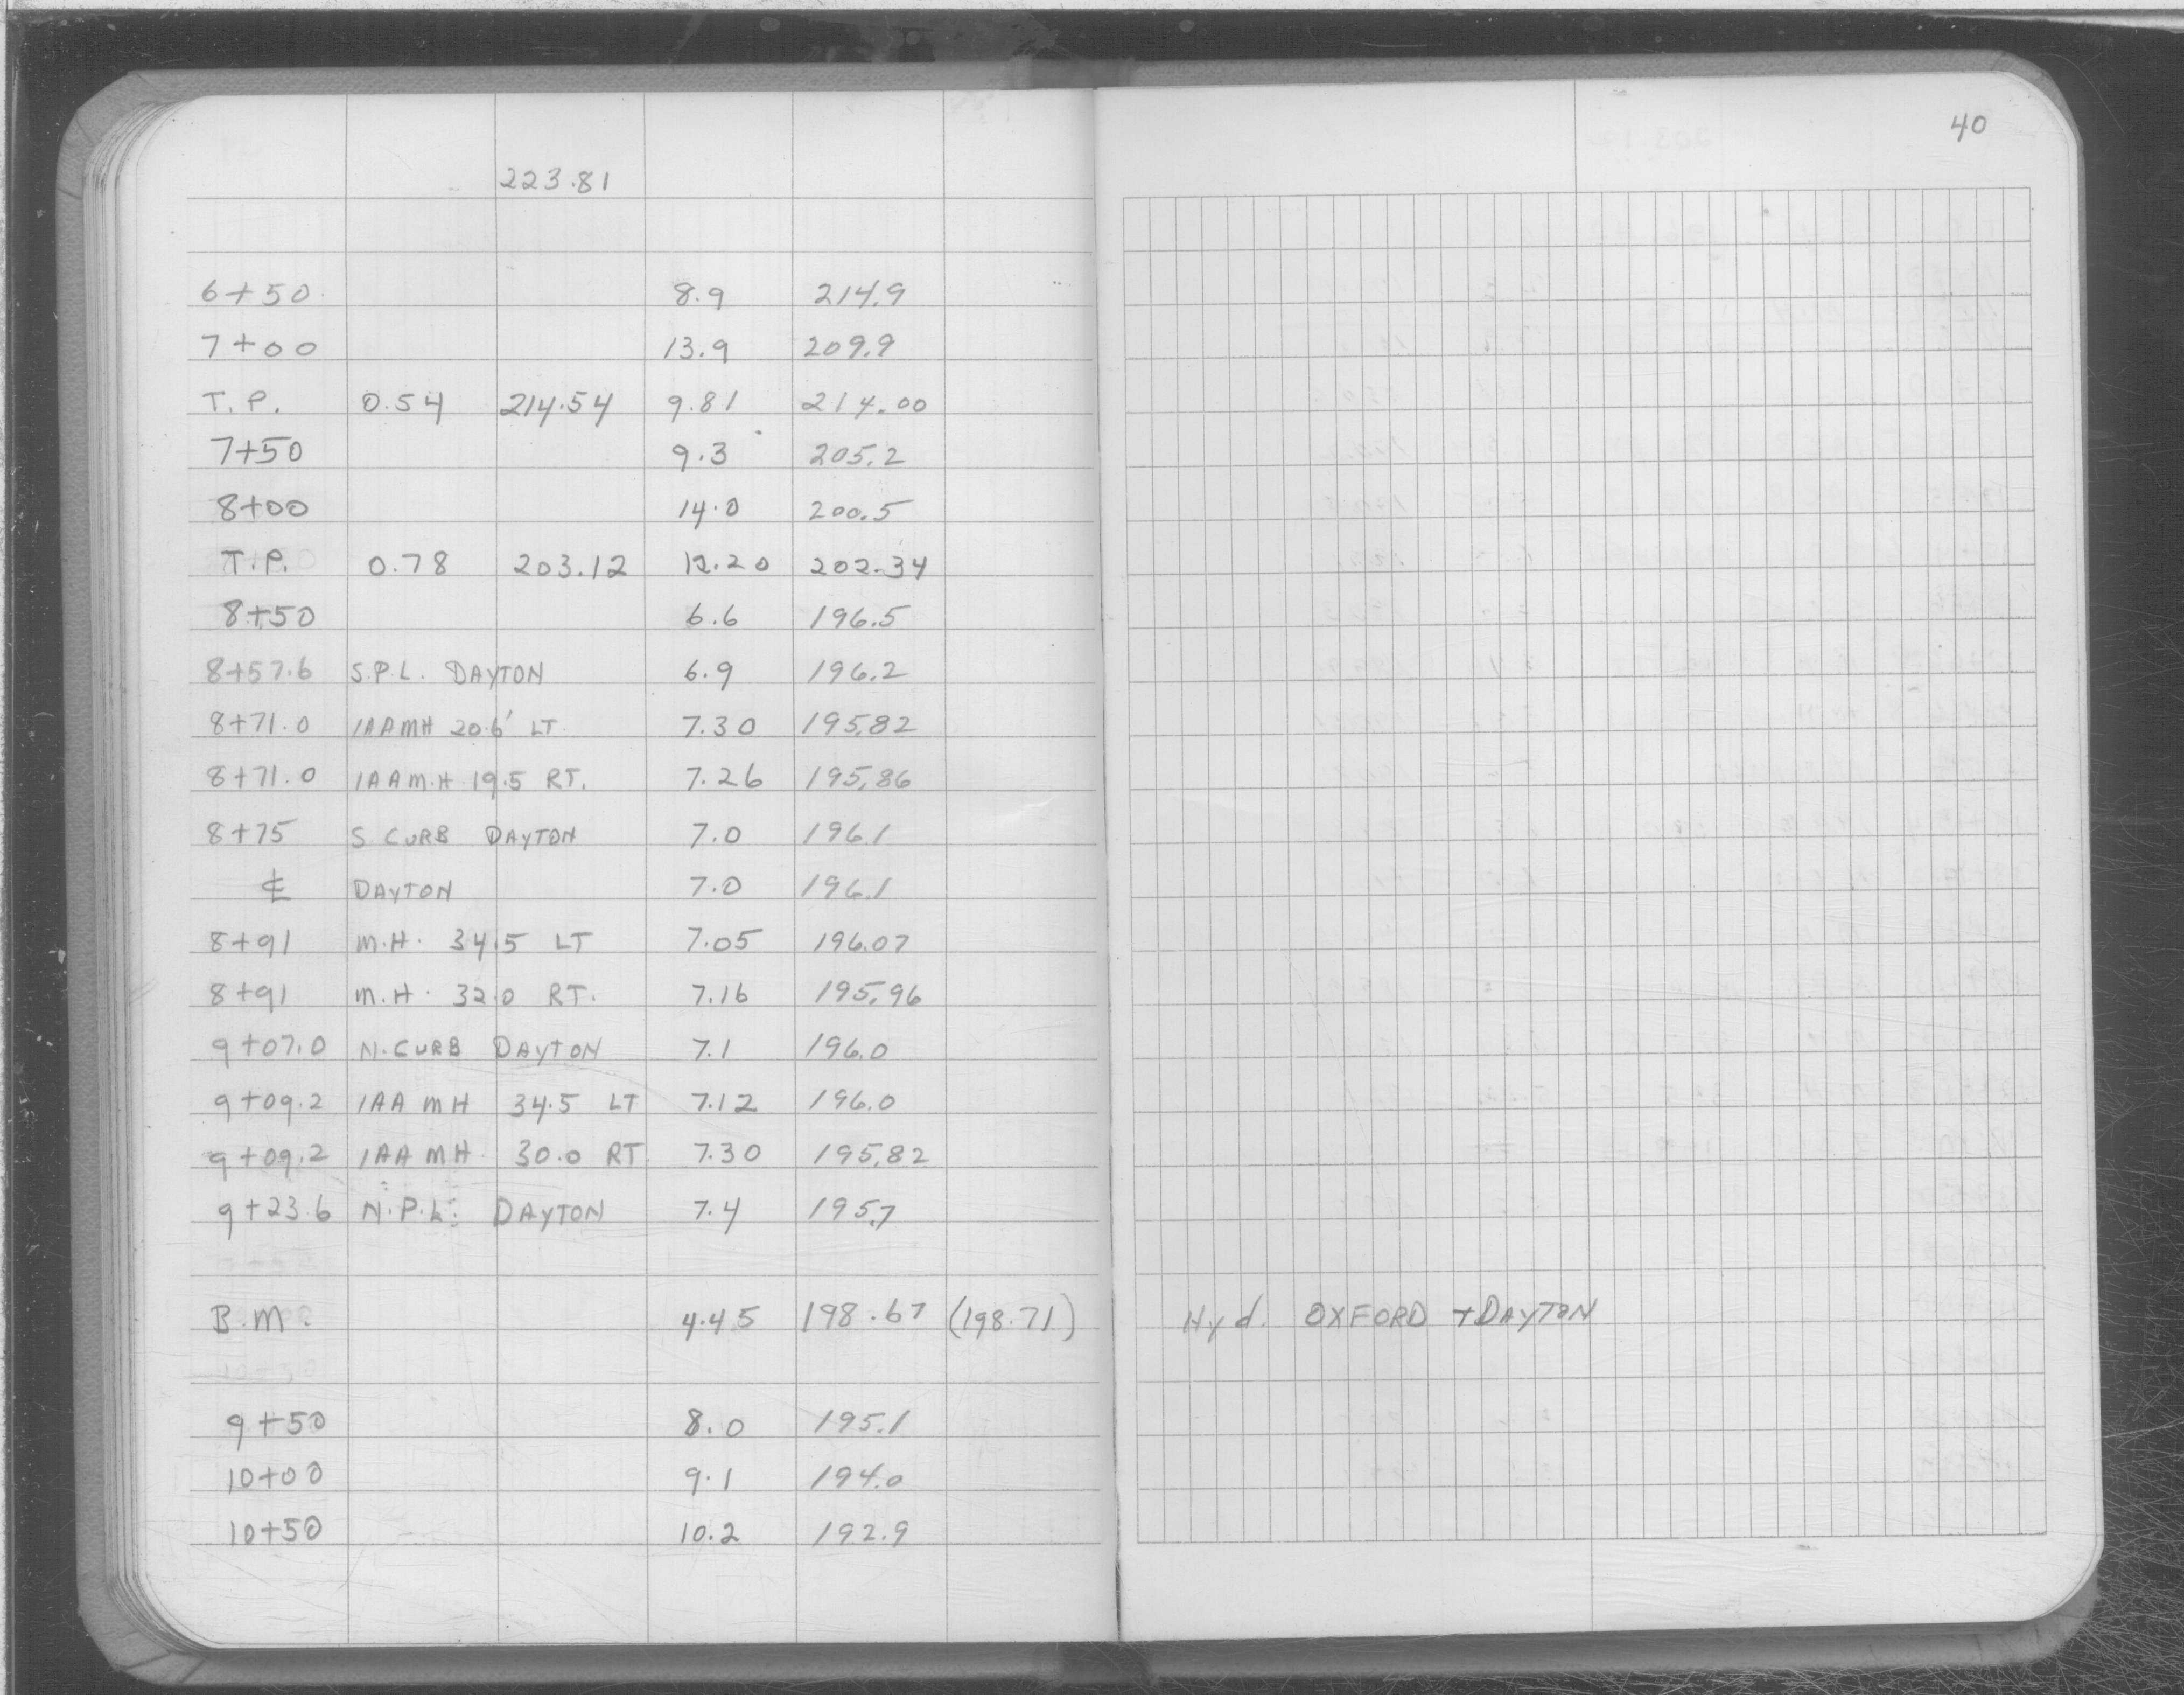 40
223.81
6+50 8.9 214.9
7+00 13.9 209.9
T.P. 0.54 214.54 9.81 214.00
7+50 9.3 205.2
8+00 14.0 200.5
T.P. 0.78 203.12 12.20 202.34
8+50 6.6 196.5
8+57.6 S.P.L. DAYTON 6.9 196.2
8+71.0 1AAMH 20.6' LT 7.30 195.82
8+71.0 1AAM.H 19.5 RT. 7.26 195.86
8+75 S CURB DAYTON 7.0 196.1
℄ DAYTON 7.0 196.1
8+91 M.H. 34.5 LT 7.05 196.07
8+91 M.H. 32.0 RT. 7.16 195.96
9+07.0 N.CURB DAYTON 7.1 196.0
9+09.2 1AA MH 34.5 LT 7.12 196.0
9+09.2 1AA MH 30.0 RT. 7.30 195.82
9+23.6 N.P.L. DAYTON 7.4 195.7
B.M. 4.45 198.67 (198.71) Hyd. OXFORD + DAYTON
9+50 8.0 195.1
10+00 9.1 194.0
10+50 10.2 192.9